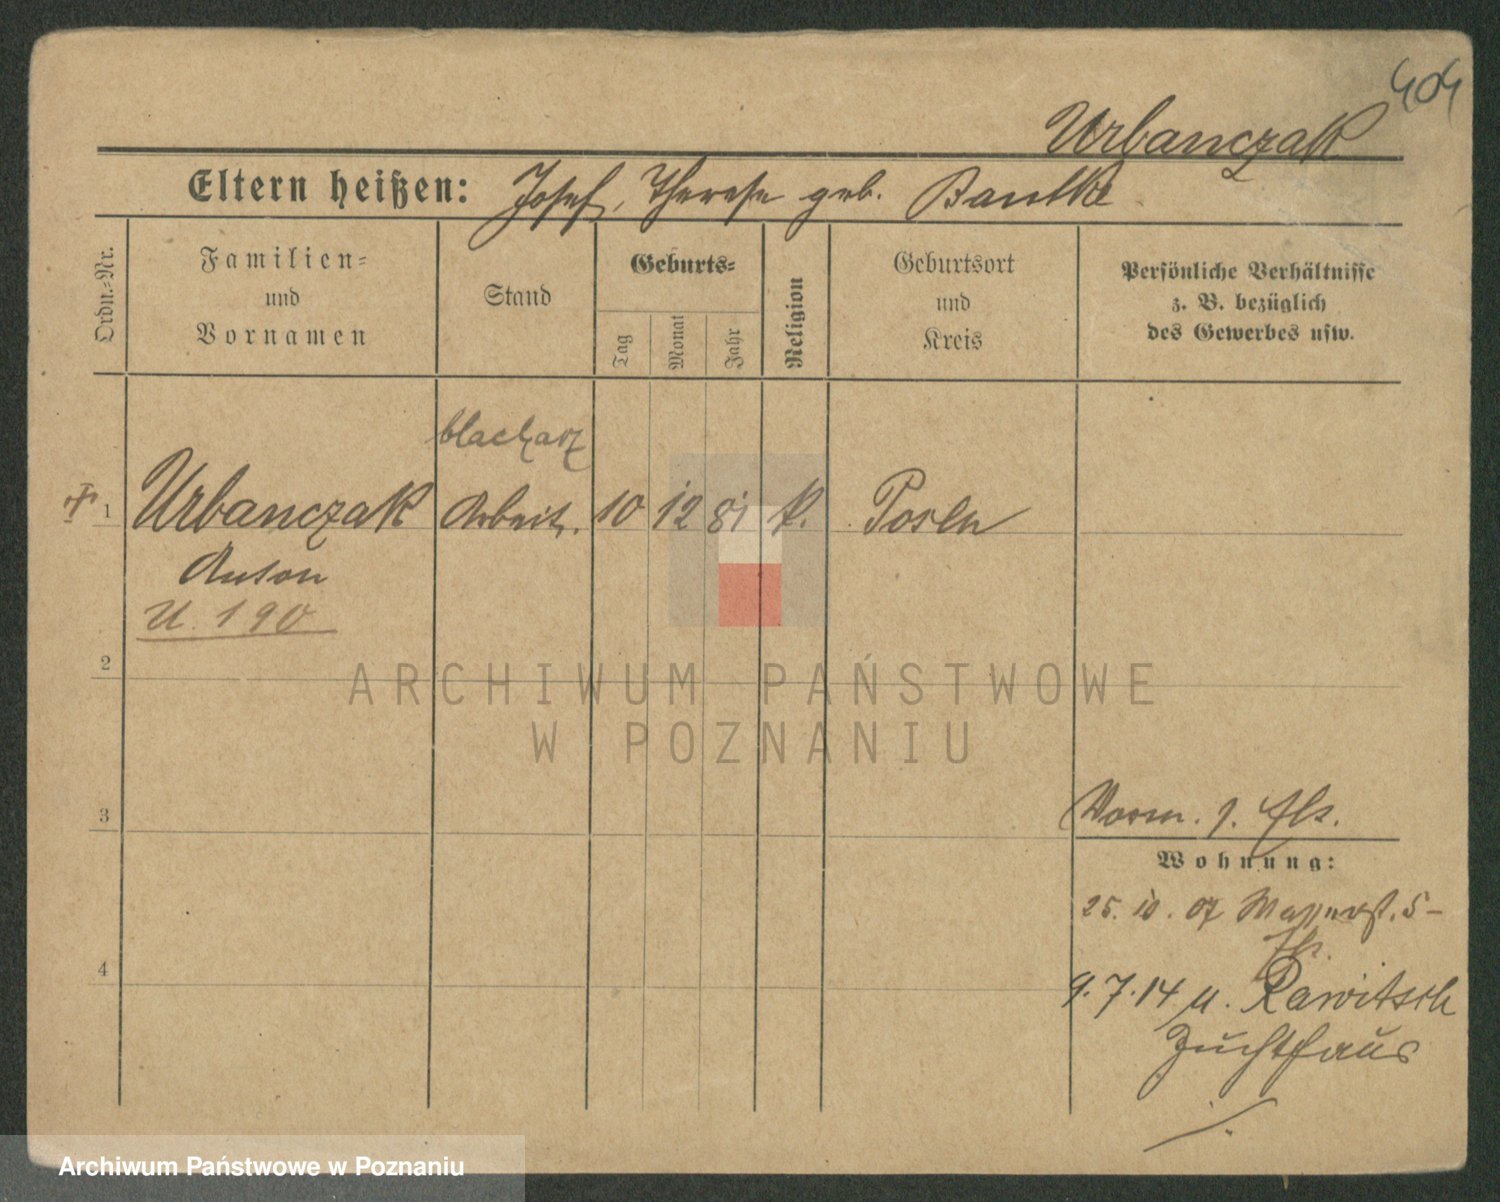 404
Urbanczak
Eltern heißen: Josef, Therese geb. Bantke
Ordn.-Nr.
Familien-
und
Vornamen
Stand
Geburts-
Tag
Monat
Jahr
Religion
Geburtsort
und
Kreis
Persönliche Verhältnisse
z. B. bezüglich
des Gewerbes usw.
blacharz
1 Urbanczak Arbeit. 10 12 81 k. Posen
Anton
U. 190
2
ARCHIWUM PAŃSTWOWE
W POZNANIU
3
Vorm. j. Fls.
Wohnung:
25. 10. 07 Wasserst. 5
4
9. 7. 14 u. Rawitsch
Zuchthaus
Archiwum Państwowe w Poznaniu